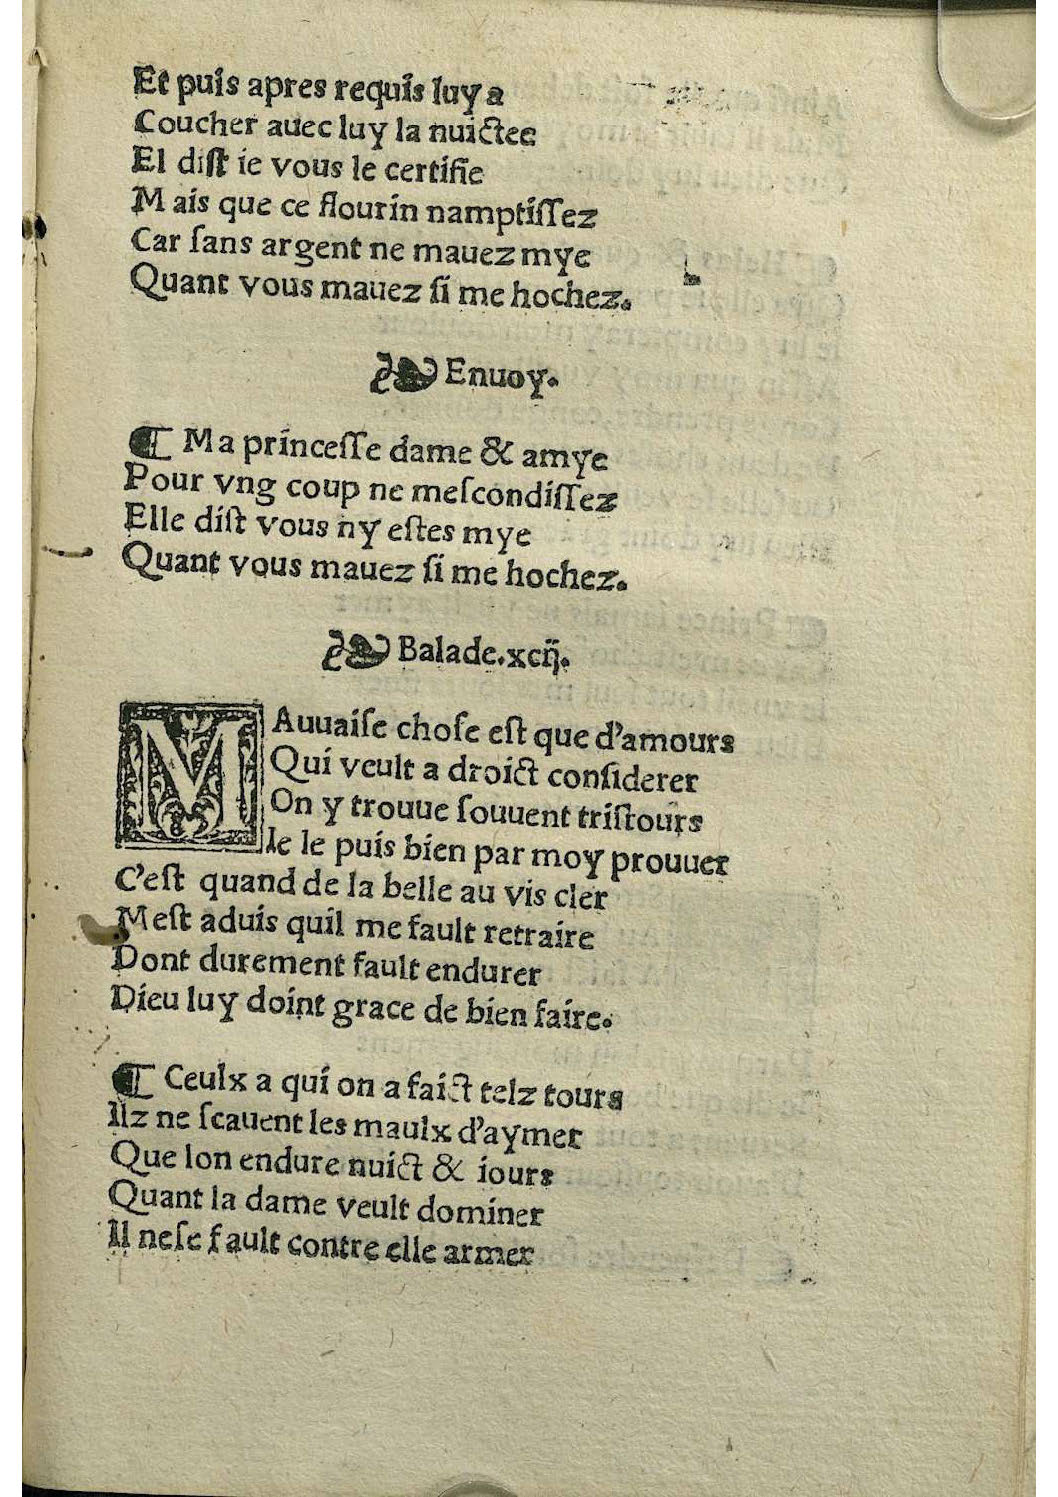 Et puis apres requis luy a
Coucher auec luy la nuictee
El dist ie vous le certifie
Mais que ce flourin namptissez
Car sans argent ne mauez mye
Quant vous mauez si me hochez.
Enuoy.
¶ Ma princesse dame & amye
Pour vng coup ne mescondissez
Elle dist vous ny estes mye
Quant vous mauez si me hochez.
Balade.xcij.
MAuuaise chose est que d'amours
Qui veult a droict considerer
On y trouue souuent tristours
Ie le puis bien par moy prouuer
C'est quand de la belle au vis cler
Mest aduis quil me fault retraire
Dont durement fault endurer
Dieu luy doint grace de bien faire.
¶ Ceulx a qui on a faict telz tours
Ilz ne scauent les maulx d'aymer
Que lon endure nuict & iours
Quant la dame veult dominer
Il nese fault contre elle armer